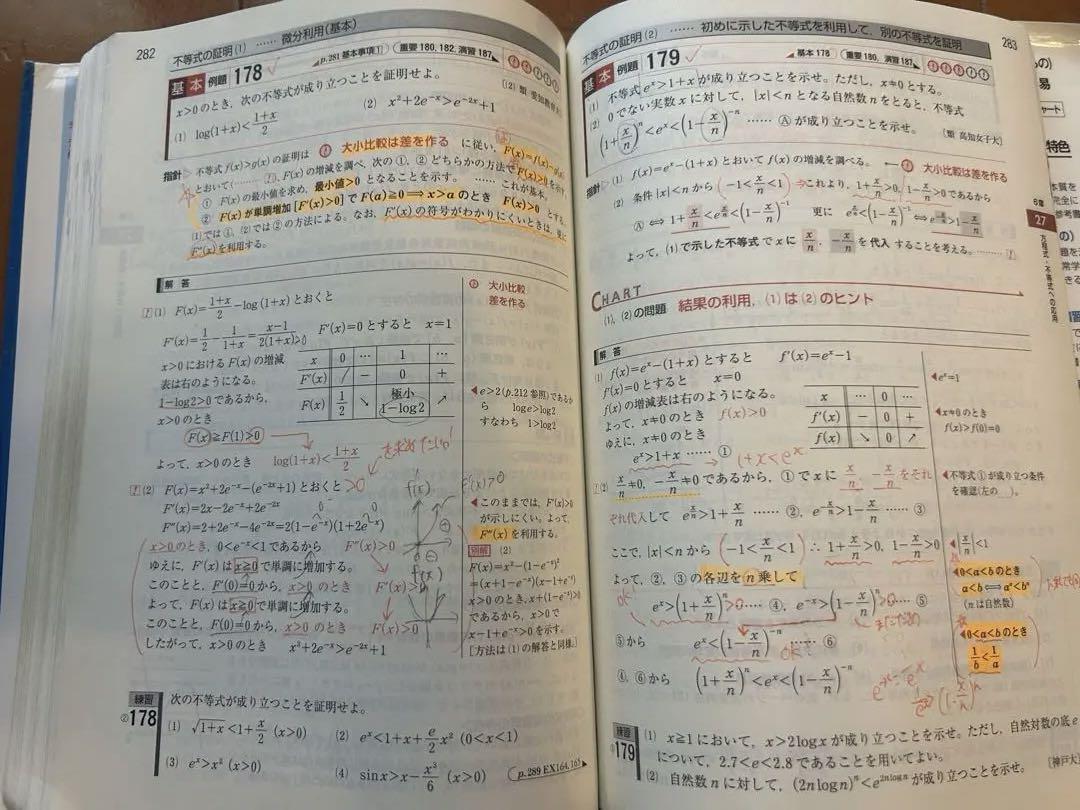 282
不等式の証明(1) …… 微分利用(基本)
基本 例題 178
p.281 基本事項1
重要 180, 182, 演習 187
x>0 のとき, 次の不等式が成り立つことを証明せよ。
(1) log(1+x)<(1+x)/2
(2) x²+2e^{-x}>e^{-2x}+1
指針 不等式 f(x)>g(x) の証明は 大小比較は差を作る に従い, F(x)=f(x)-g(x)
とおいて, F(x) の増減を調べ, 次の①, ②どちらかの方法で F(x)>0 を示す。
① F(x) の最小値を求め, 最小値>0 となることを示す。 …… これが基本。
② F(x) が単調増加 [F'(x)>0] で F(a)≧0 ⟹ x>a のとき F(x)>0 とする。
(1)では①, (2)では②の方法による。なお, F'(x) の符号がわかりにくいときは, 更に
F''(x) を利用する。
解答
(1) F(x)=(1+x)/2-log(1+x) とおくと
F'(x)=1/2-1/(1+x)=(x-1)/(2(1+x))
F'(x)=0 とすると x=1
x>0 における F(x) の増減
表は右のようになる。
1-log2>0 であるから,
x>0 のとき
F(x)≧F(1)>0
よって, x>0 のとき log(1+x)<(1+x)/2
x 0 … 1 …
F'(x) / - 0 +
F(x) 1/2 ↘ 極小 1-log2 ↗
大小比較
差を作る
◀e>2(p.212 参照)であるか
ら loge>log2
すなわち 1>log2
(2) F(x)=x²+2e^{-x}-(e^{-2x}+1) とおくと >0
F'(x)=2x-2e^{-x}+2e^{-2x}
F''(x)=2+2e^{-x}-4e^{-2x}=2(1-e^{-x})(1+2e^{-x})
x>0 のとき, 0<e^{-x}<1 であるから F''(x)>0
ゆえに, F'(x) は x≧0 で単調に増加する。
このことと, F'(0)=0 から, x>0 のとき F'(x)>0
よって, F(x) は x≧0 で単調に増加する。
このことと, F(0)=0 から, x>0 のとき F(x)>0
したがって, x>0 のとき x²+2e^{-x}>e^{-2x}+1
f(x)
f(x)
◀このままでは, F'(x)>0
が示しにくい。よって,
F''(x) を利用する。
別解 (2)
F(x)=x²-(1-e^{-x})²
=(x+1-e^{-x})(x-1+e^{-x})
x>0 のとき, x+(1-e^{-x})>0
であるから, x>0 で
x-1+e^{-x}>0 を示す。
[方法は(1)の解答と同様。]
練習 ②178 次の不等式が成り立つことを証明せよ。
(1) √(1+x)<1+x/2 (x>0)
(2) e^x<1+x+(e/2)x² (0<x<1)
(3) e^x>x² (x>0)
(4) sinx>x-x³/6 (x>0)
p.289 EX164, 165
283
不等式の証明(2) …… 初めに示した不等式を利用して, 別の不等式を証明
基本 例題 179
基本 178
重要 180, 演習 187
(1) 不等式 e^x>1+x が成り立つことを示せ。ただし, x≠0 とする。
(2) 0 でない実数 x に対して, |x|<n となる自然数 n をとると, 不等式
(1+x/n)^n<e^x<(1-x/n)^{-n} …… Ⓐ が成り立つことを示せ。
[類 高知女子大]
指針 (1) f(x)=e^x-(1+x) とおいて f(x) の増減を調べる。 ← 大小比較は差を作る
(2) 条件 |x|<n から (-1<x/n<1) これより, 1+x/n>0, 1-x/n>0 であるから
Ⓐ ⟺ 1+x/n<e^{x/n}<(1-x/n)^{-1} 更に e^{x/n}<(1-x/n)^{-1} ⟺ e^{-x/n}>1-x/n
よって, (1)で示した不等式で x に x/n, -x/n を代入 することを考える。
CHART
(1), (2) の問題 結果の利用, (1) は (2) のヒント
解答
(1) f(x)=e^x-(1+x) とすると f'(x)=e^x-1
f'(x)=0 とすると x=0
f(x) の増減表は右のようになる。
よって, x≠0 のとき f(x)>0
ゆえに, x≠0 のとき
e^x>1+x …… ① 1+x<e^x
x … 0 …
f'(x) - 0 +
f(x) ↘ 0 ↗
◀e^x=1
◀x≠0 のとき
f(x)>f(0)=0
(2) x/n≠0, -x/n≠0 であるから, ①で x に x/n, -x/n をそれ
ぞれ代入して e^{x/n}>1+x/n …… ②, e^{-x/n}>1-x/n …… ③
◀不等式①が成り立つ条件
を確認(左の ＿)。
ここで, |x|<n から (-1<x/n<1) ∴ 1+x/n>0, 1-x/n>0
◀|x/n|<1
よって, ②, ③の各辺を n 乗して
e^x>(1+x/n)^n>0 …… ④, e^{-x}>(1-x/n)^n>0 …… ⑤
◀0<a<b のとき
a<b ⟺ a^n<b^n
(n は自然数)
⑤から e^x<(1-x/n)^{-n} …… ⑥
◀0<a<b のとき
1/b<1/a
④, ⑥から (1+x/n)^n<e^x<(1-x/n)^{-n}
練習 179 (1) x≧1 において, x>2logx が成り立つことを示せ。ただし, 自然対数の底 e
について, 2.7<e<2.8 であることを用いてよい。
(2) 自然数 n に対して, (2nlogn)^n<e^{2nlogn} が成り立つことを示せ。
[神戸大
6章
27
方程式・不等式への応用